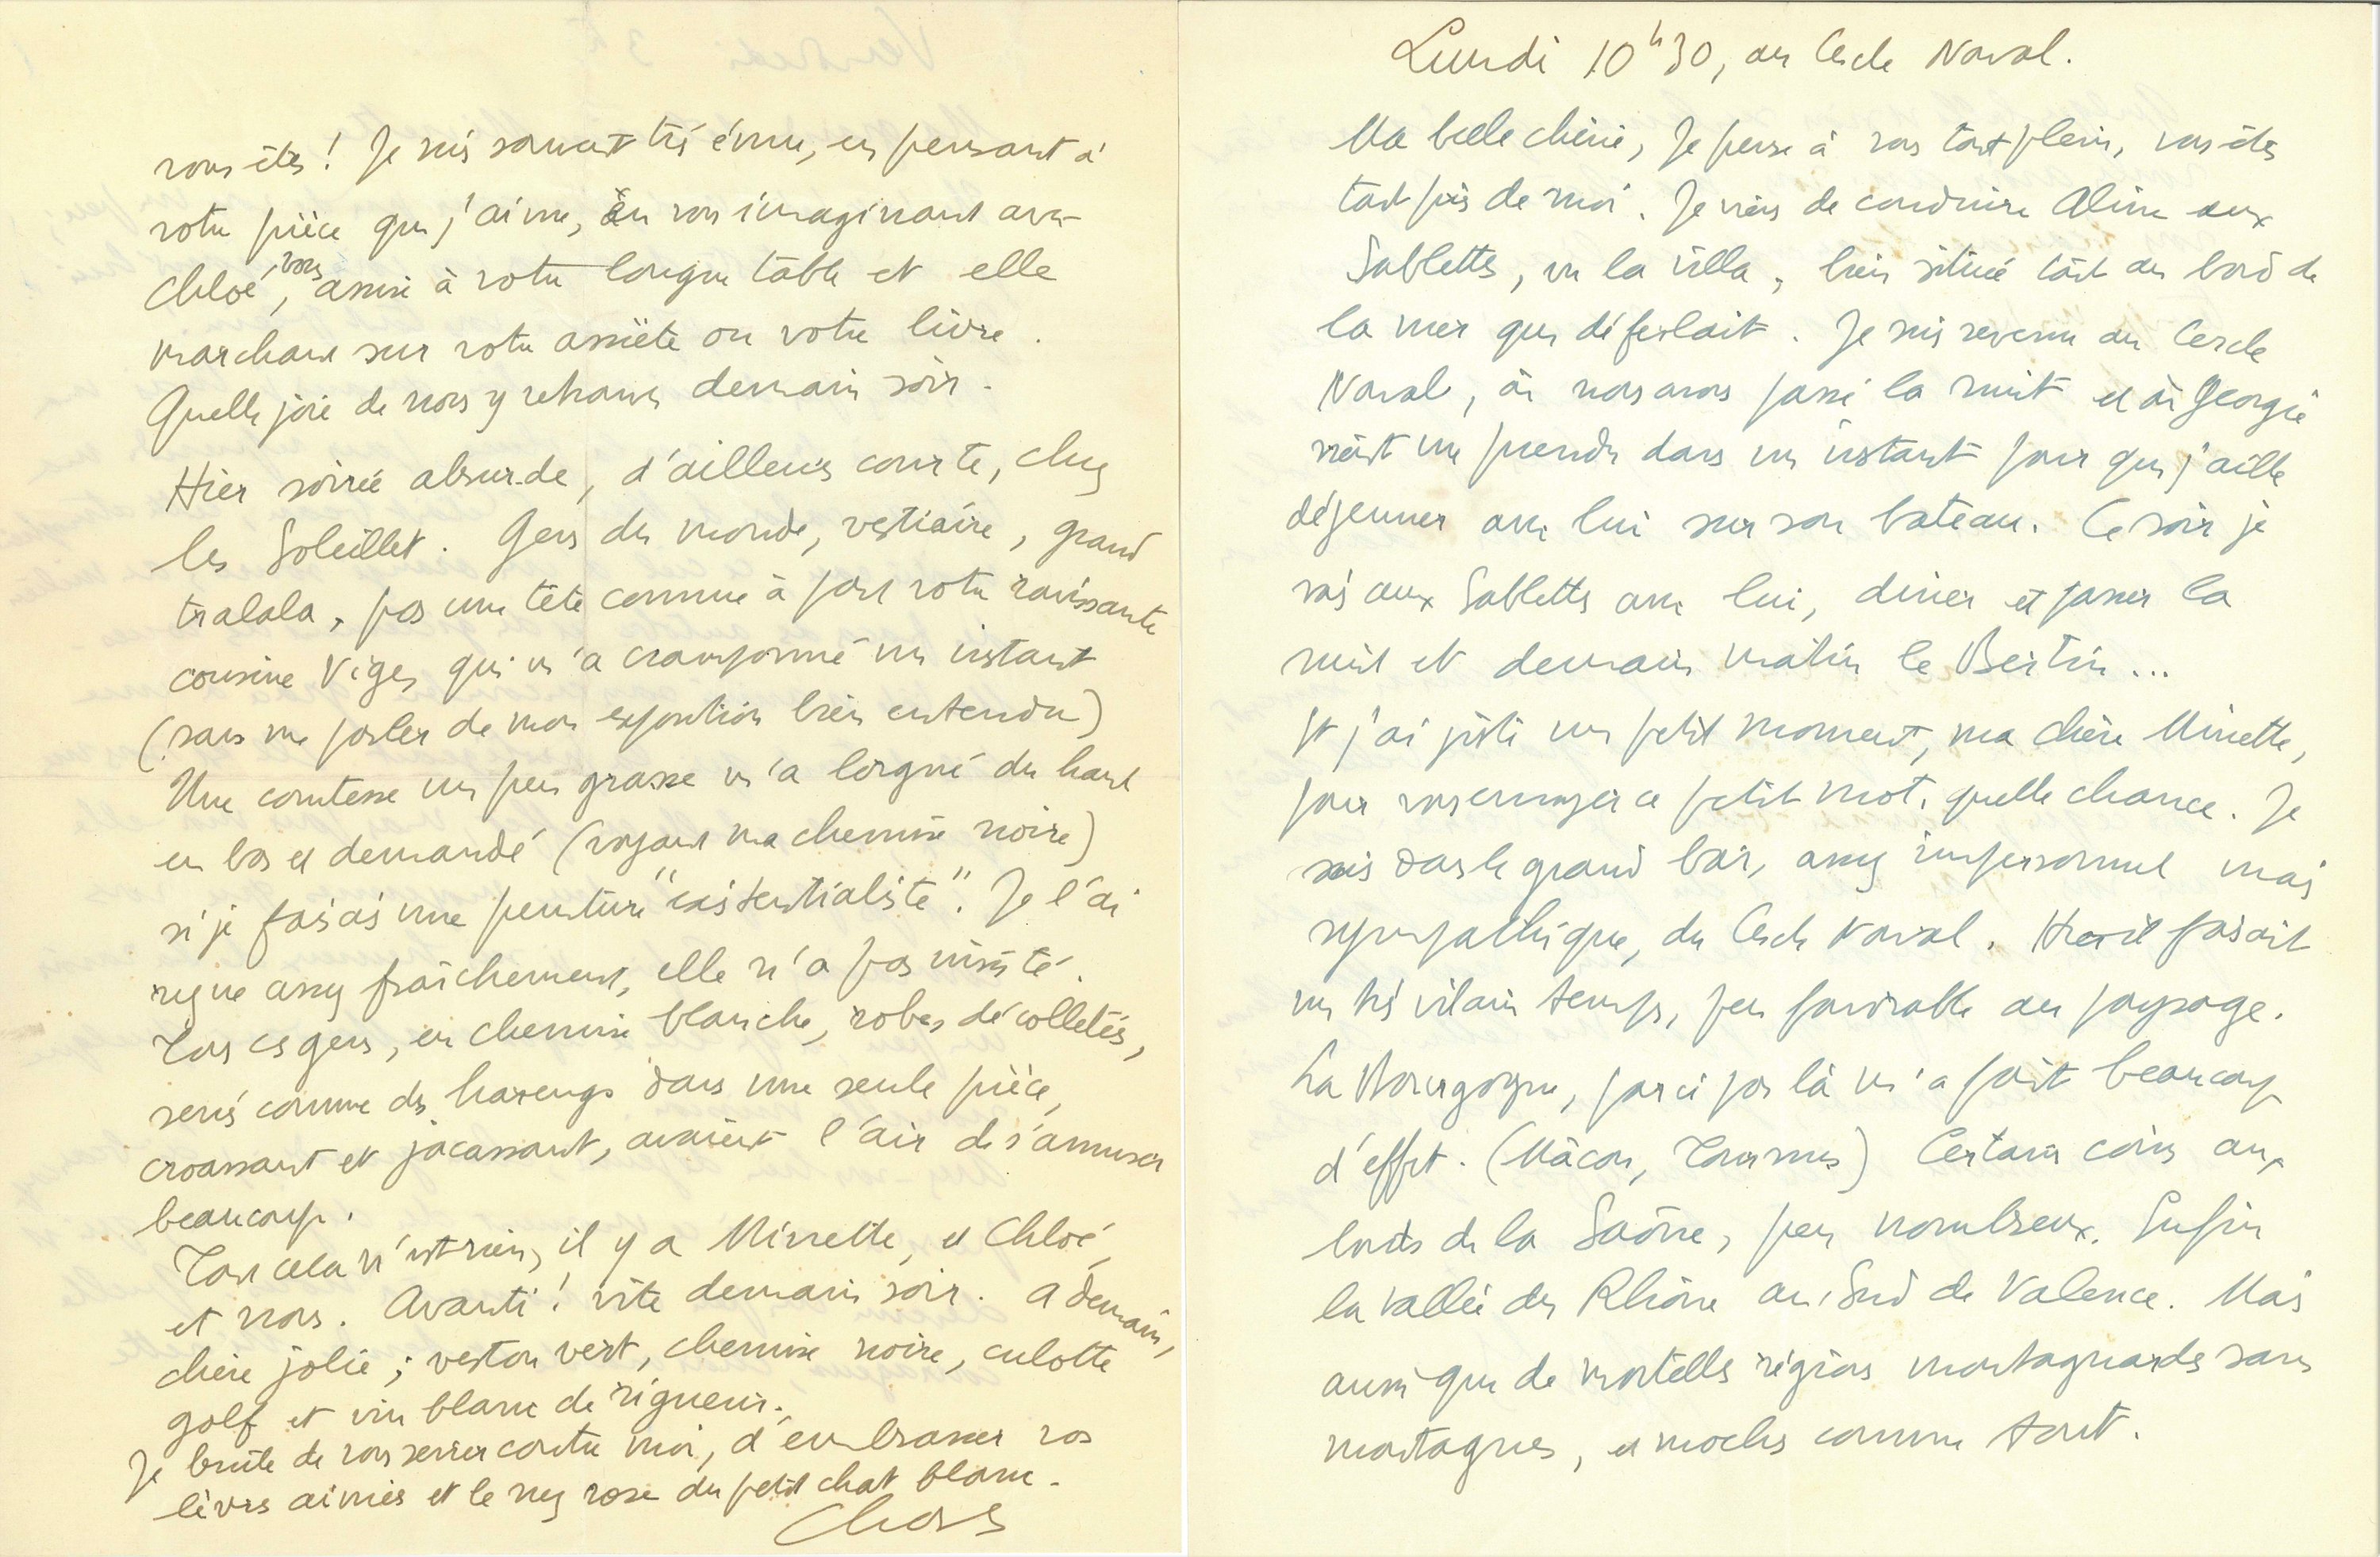 vous êtes ! Je suis souvent très émue, en pensant à
votre pièce que j'aime, en vous imaginant avec
Chloé, vous assise à votre longue table et elle
marchant sur votre assiète ou votre livre.
Quelle joie de nous y retrouver demain soir.
Hier soirée absurde, d'ailleurs courte, chez
les Soleillet. Gens du monde, vestiaire, grand
tralala, pas une tête connue à part votre ravissante
cousine Viger qui m'a cramponné un instant
(sans me parler de mon exposition bien entendu)
Une comtesse un peu grasse m'a lorgné du haut
en bas et demandé (voyant ma chemise noire)
si je faisais une peinture "existentialiste". Je l'ai
reçue assez fraîchement, elle n'a pas insisté.
Tous ces gens, en chemise blanche, robes décolletés,
serrés comme des harengs dans une seule pièce,
croassant et jacassant, avaient l'air de s'amuser
beaucoup.
Tout cela n'est rien, il y a Minette, et Chloé,
et nous. Avanti ! vite demain soir. A demain,
chère jolie ; veston vert, chemise noire, culotte
golf et vin blanc de rigueur.
Je brûle de vous serrer contre moi, d'embrasser vos
lèvres aimées et le nez rose du petit chat blanc.
Chars
Lundi 10h30, au Cercle Naval.
Ma belle chérie, Je pense à vous tout plein, vous êtes
tout près de moi. Je viens de conduire Aline aux
Sablettes, vu la villa, bien située tout au bord de
la mer qui déferlait. Je suis revenu au Cercle
Naval, où nous avons passé la nuit et où Georgie
vient me prendre dans un instant pour que j'aille
déjeuner avec lui sur son bateau. Ce soir je
vais aux Sablettes avec lui, diner et passer la
nuit et demain matin le Bertin...
Et j'ai juste un petit moment, ma chère Minette,
pour vous envoyer ce petit mot, quelle chance. Je
suis dans le grand bar, assez impersonnel mais
sympathique, du Cercle Naval. Hier il faisait
un très vilain temps, peu favorable au paysage.
La Bourgogne, par ci par là m'a fait beaucoup
d'effet. (Mâcon, Tournus) Certains coins aux
bords de la Saône, peu nombreux. Enfin
la vallée du Rhône au Sud de Valence. Mais
aussi que de mortelles régions montagnardes sans
montagnes, et moches comme tout.